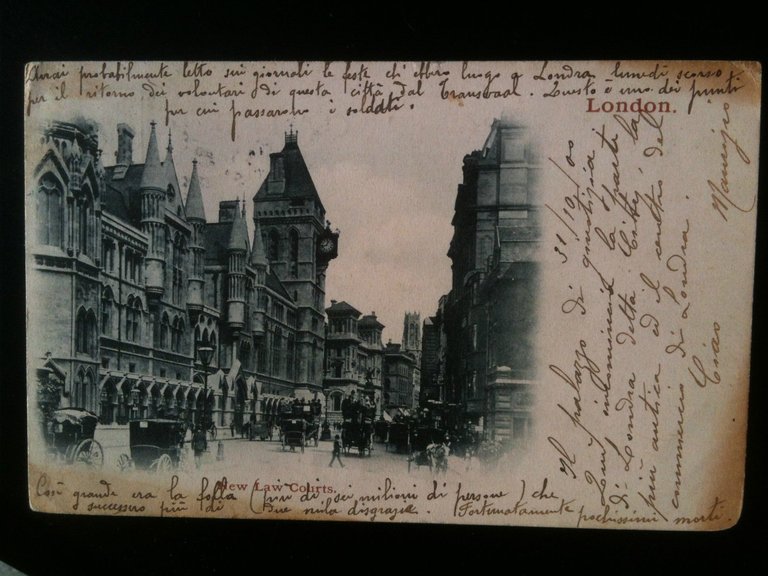 Avrai probabilmente letto sui giornali le feste ch'ebbero luogo a Londra lunedì scorso
per il ritorno dei volontari di questa città dal Transvaal. Questo è uno dei punti
per cui passarono i soldati.
London.
31/10/00
Il palazzo di giustizia
Qui incominciò la parte
di Londra detta City, la
più antica ed il centro del
commercio di Londra.
Ciao
New Law Courts.
Così grande era la folla (più di sei milioni di persone) che
successero più di due mila disgrazie. Fortunatamente pochissimi morti.